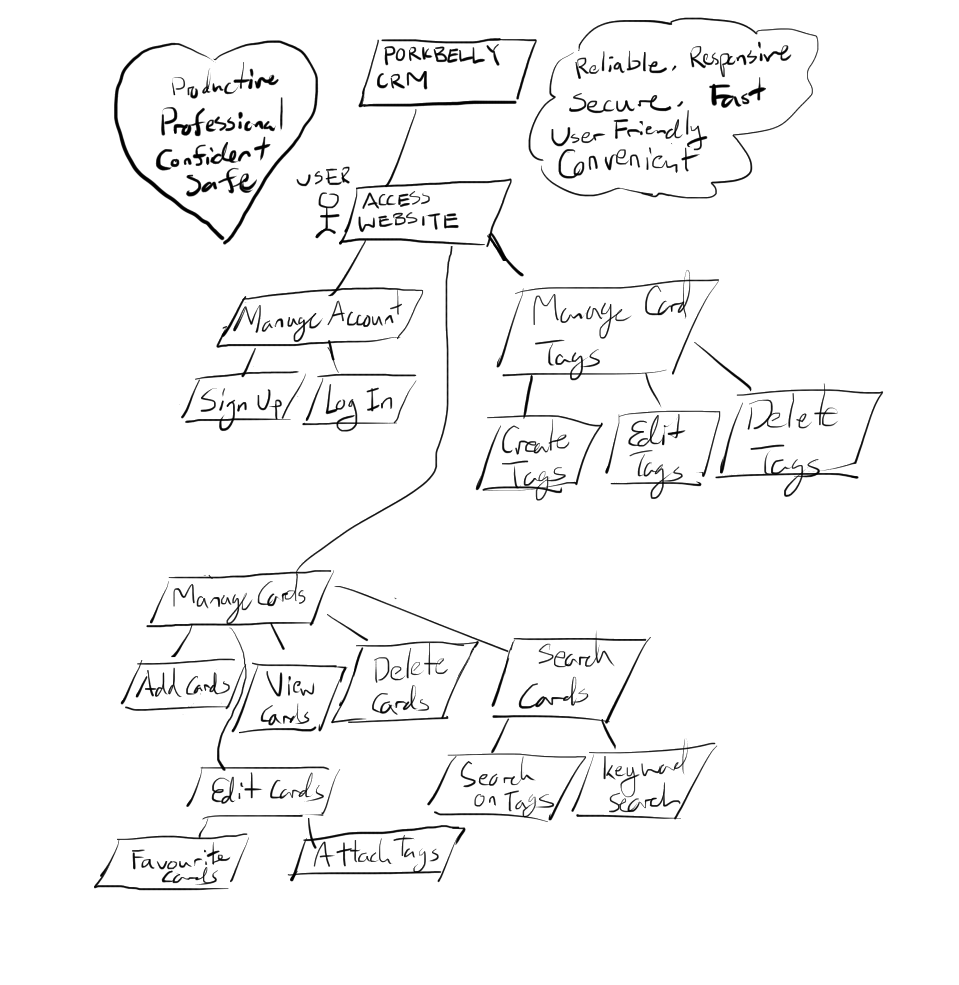 Productive
Professional
Confident
Safe
PORKBELLY
CRM
Reliable. Responsive
Secure. Fast
User Friendly
Convenient
USER
ACCESS
WEBSITE
Manage Account
Sign Up
Log In
Manage Card
Tags
Create
Tags
Edit
Tags
Delete
Tags
Manage Cards
Add Cards
View
Cards
Delete
Cards
Search
Cards
Edit Cards
Search
on Tags
keyword
search
Favourite
Cards
Attach Tags